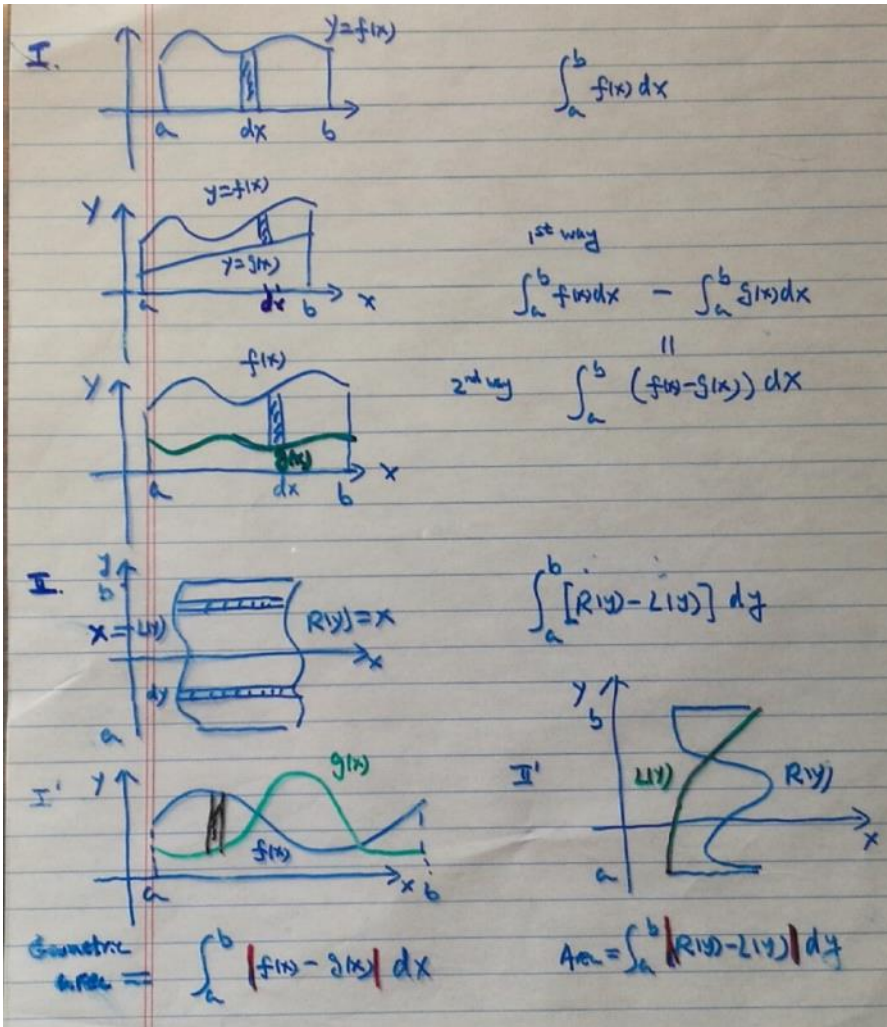 I.
y=f(x)
a dx b
∫_a^b f(x) dx
y
y=f(x)
y=g(x)
a dx b x
1st way
∫_a^b f(x)dx - ∫_a^b g(x)dx
||
2nd way ∫_a^b (f(x)-g(x)) dx
y
f(x)
g(x)
a dx b x
II.
y
b
x=L(y) R(y)=x
x
dy
a
∫_a^b [R(y)-L(y)] dy
I' y
g(x)
f(x)
a x b
II'
y
b
L(y) R(y)
x
a
Geometric
area = ∫_a^b |f(x)-g(x)| dx
Area = ∫_a^b |R(y)-L(y)| dy